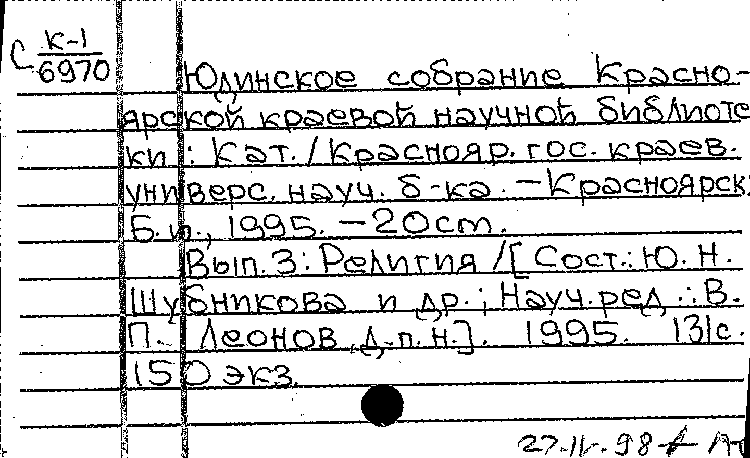 С К-1
6970
Юдинское собрание Красно-
ярской краевой научной библиоте
ки : Кат. / Краснояр. гос. краев.
универс. науч. б-ка. — Красноярск:
Б.и., 1995. — 20 cm.
Вып. 3 : Религия / [Сост.: Ю. Н.
Шубникова и др. ; Науч. ред.: В.
П. Леонов, д.п.н.]. 1995. 131с.
150 экз.
27.IV.98